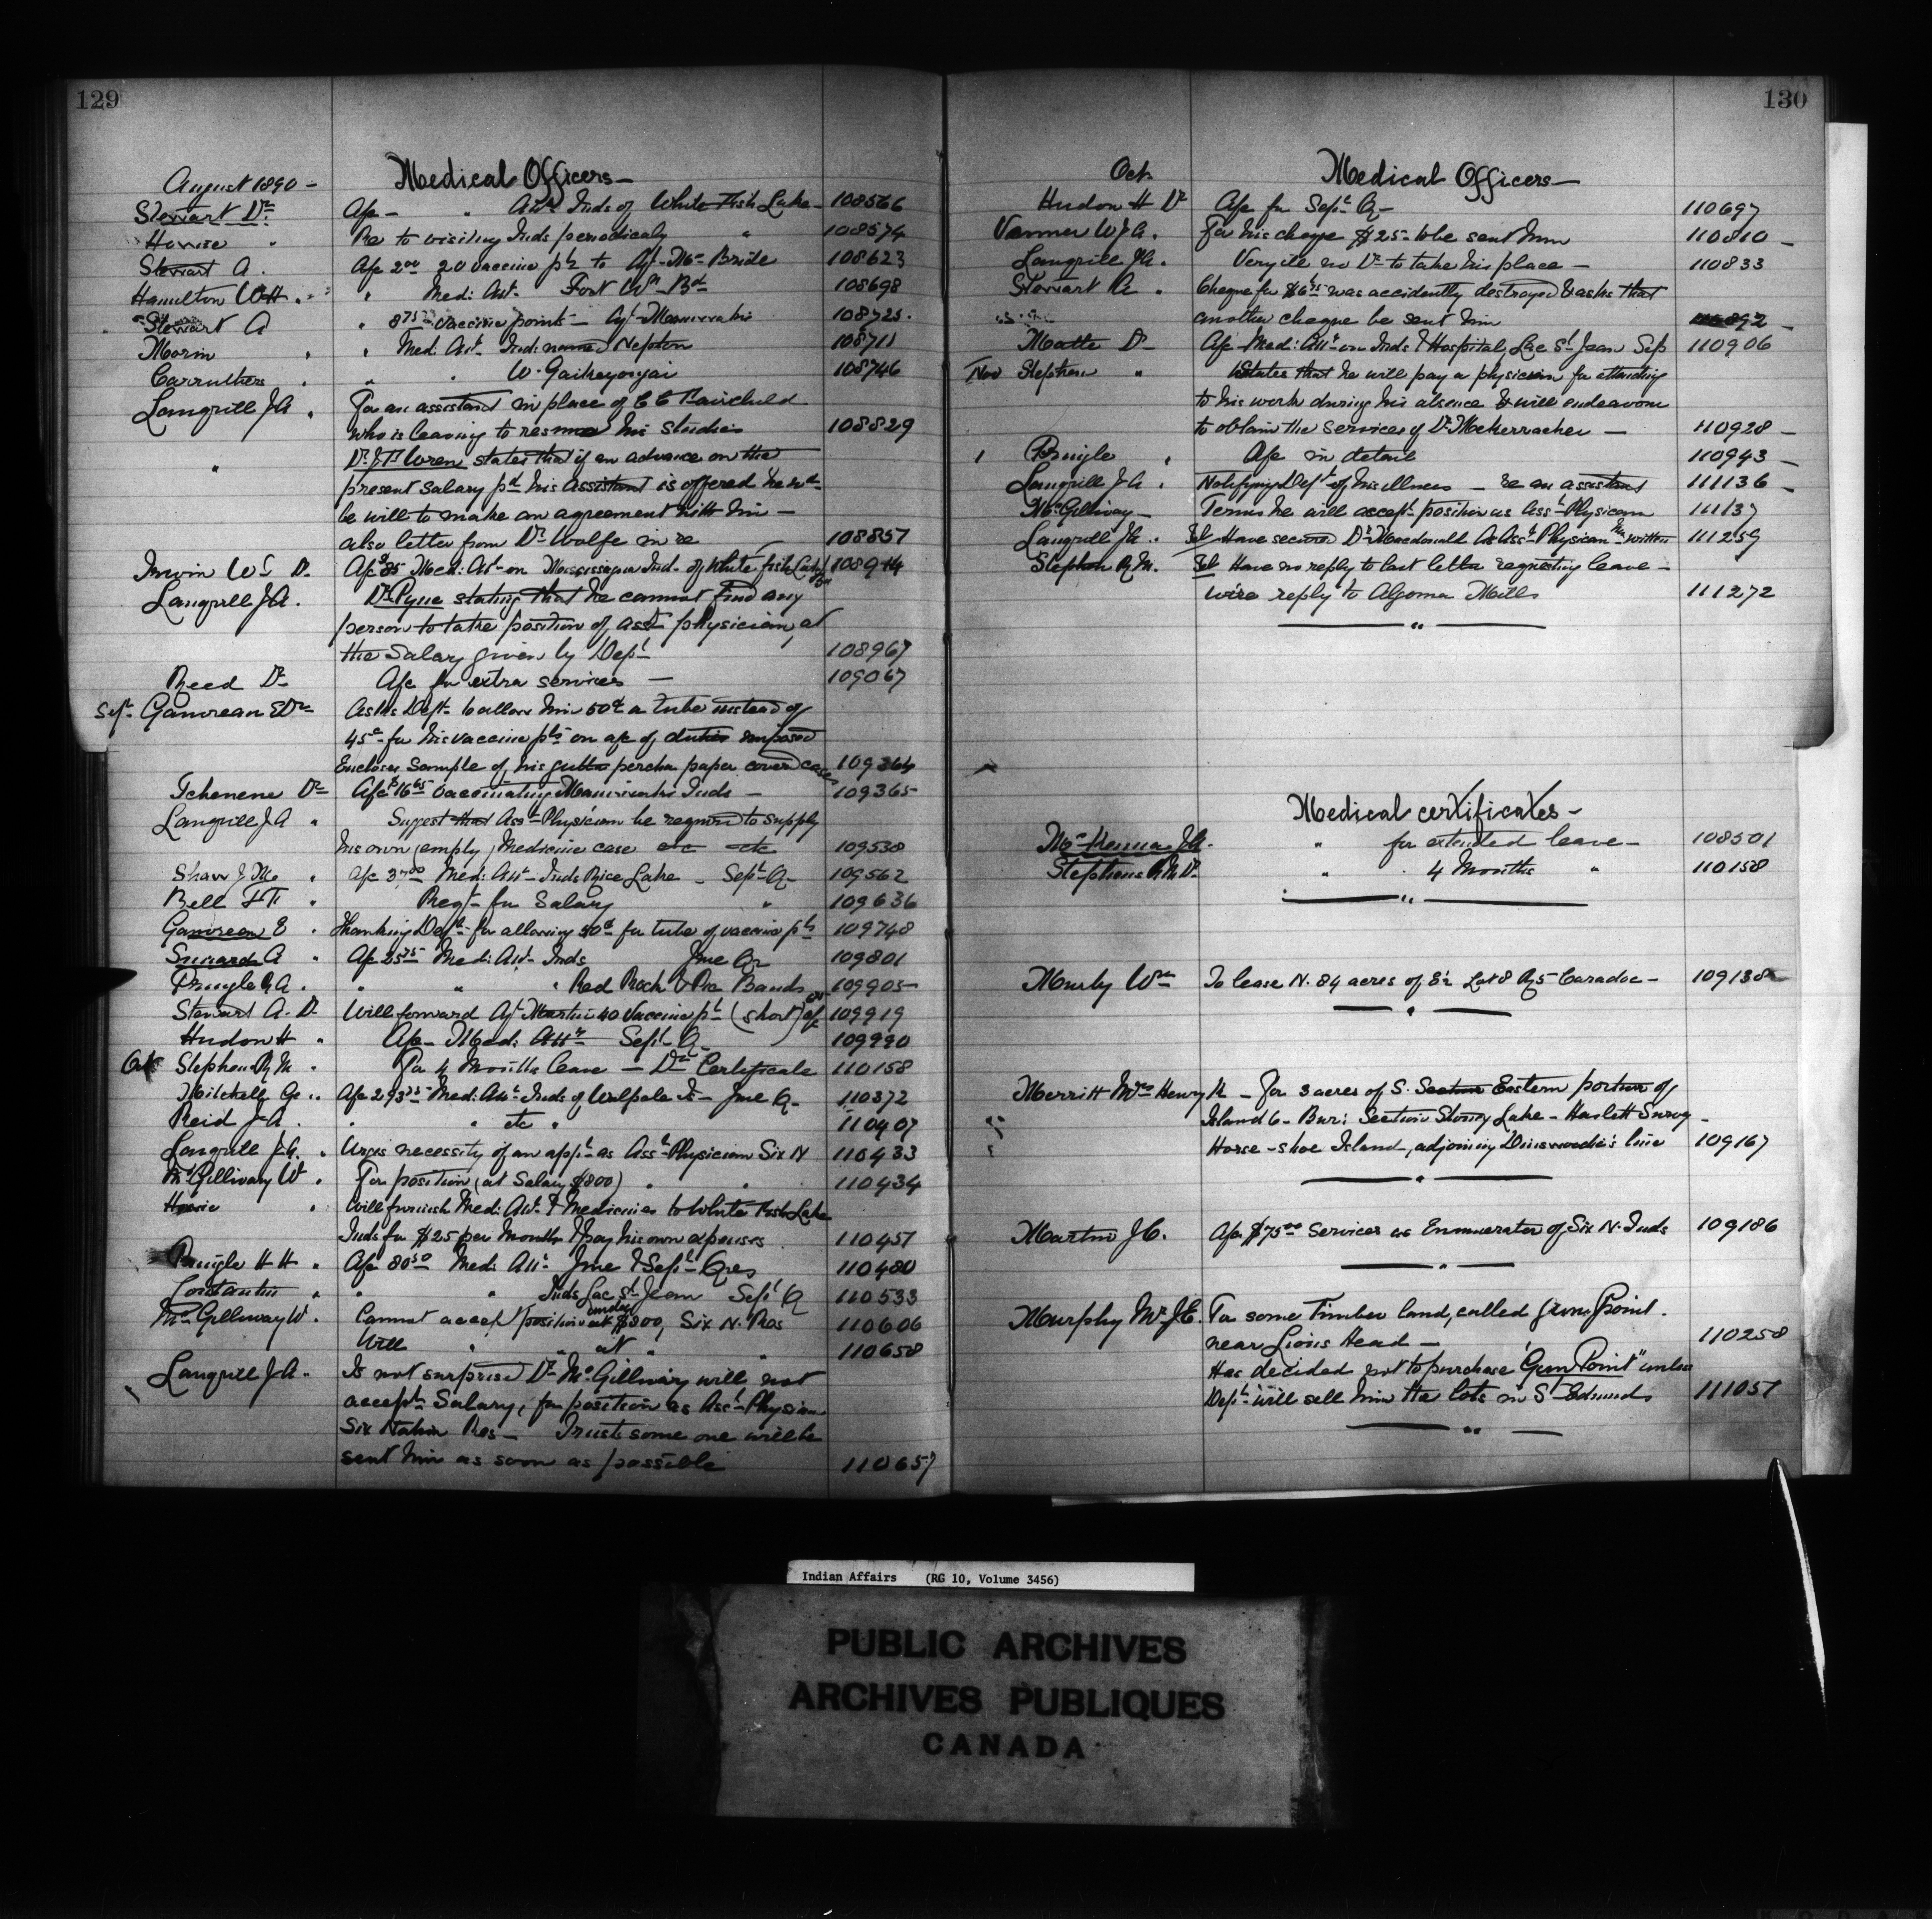 129
August 1890 -
Medical Officers -
Stewart Dr
A/c - " Attn Inds of White Fish Lake -
108566
Howie "
Re to visiting Inds periodically "
108574
Stewart A.
A/c 2.00 20 vaccine pts to Agt McBride
108623
Hamilton W H. "
" Med: Att. Fort Wm Bd
108698
Stewart A
" 8.75 vaccine points - Agt
108725.
Morin "
" Med: Att. Ind: named
108711
Carruthers "
" " W.
108746
Langrill J A "
For an assistant in place of C C Fairchild
who is leaving to resume his studies
108829
"
Dr J T Wren states that if an advance on the
present salary pd his assistant is offered he wd
be will to make an agreement with him -
also letter from Dr Wolfe in re
108857
Irwin W T D
A/c $85 Med: Att. on Mississagua Ind. of White fish Lake
108914
Langrill J A.
Dr Pyne stating that he cannot find any
person to take position of asst physician, at
the Salary given by Dept
108967
Reed Dr
A/c for extra services -
109067
Sept Gauvreau E Dr
Asks Dept. to allow him 50c a tube instead of
45c for his vaccine pts on a/c of duties imposed
Encloses Sample of his gutta percha paper covered cases
109364
Tchenene Dr
A/c $16.65 vaccinating Maniwaki Inds -
109365
Langrill J A "
Suggest that Asst Physician be required to supply
his own (empty) Medicine case etc etc
109538
Shaw J M "
A/c 37.00 Med: Att. Inds Rice Lake - Sept Q -
109562
Bell F F "
Reqt for Salary "
109636
Gauvreau E "
Thanking Dept for allowing 50c for tube of vaccine pts
109748
A "
A/c 25.75 Med: Att. Inds June Qr
109801
Pringle R A.
" " " Red Rock & Pic Bands
109905
Stewart A. D
Will forward Agt Martin 40 Vaccine pts (short)
109919
Hudon H "
A/c - Med: Att. Sept Q -
109990
Oct Stephen R M "
For 4 Months leave - Dr Certificate
110158
Mitchell Ge "
A/c 293.75 Med: Att. Inds of Walpole Is - June Q -
110372
Reid J A.
" " etc "
110407
Langrill J A. "
Urges necessity of an appt as Asst Physician Six N
110433
McGillivary W "
For position (at Salary $800) " "
110434
Howie "
Will furnish Med: Att. & Medicines to White Fish Lake
Inds for $25 per Month & pay his own expenses
110457
Pringle H H "
A/c 80.50 Med: Att. June & Sept Qres
110480
Constantin "
" " Inds Lac St Jean Sept Q
110533
McGillivary W "
Cannot accept position under $800, Six N. Res
110606
Will " " at " "
110658
Langrill J A "
Is not surprised Dr McGillivary will not
accept Salary, for position as Asst Physician
Six Nation Res - Trusts some one will be
sent him as soon as possible
110657
130
Oct.
Medical Officers -
Hudon H Dr
A/c for Sept Q -
110697
Vanner W J A.
For his cheque $25 - to be sent him
110810 -
Langrill J A.
Very ill no Dr to take his place -
110833
Stewart A "
Cheque for was accidently destroyed & asks that
another cheque be sent him
110892 -
Matte Dr
A/c Med: Att. on Inds & Hospital, Lac St Jean Sep
110906
Nov Stephen "
States that he will pay a physician for attending
to his work during his absence & will endeavour
to obtain the services of Dr McKerracher -
110928 -
Pringle "
A/c in detail
110943 -
Langrill J A "
Notifying Dept of his illness - re an assistant
111136 -
McGillivary -
Terms he will accept position as Asst Physician
111137
Langrill J A "
Tel Have secured Dr Macdonald as Asst Physician. Am writing
111259
Stephen R M.
Tel Have no reply to last letter requesting leave -
wire reply to Algoma Mills
111272
Medical certificates -
McKenna J A.
" for extended leave -
108501
Stephens R M Dr
" 4 Months "
110158
Murly Wm
To lease N. 84 acres of E½ Lot 8 R5 Caradoc -
109138
Merritt Mrs Henry R - For 3 acres of S. Section Eastern portion of
Island 6 - Bur: Section Stoney Lake - Haslett Survey -
Horse-shoe Island, adjoining line
109167
Martin J C.
A/c $75.00 Services as Enumerator of Six N. Inds
109186
Murphy Mr J C.
For some Timber land, called Gun Point.
near Lions Head -
110258
Has decided not to purchase "Gun Point" unless
Dept will sell him the lots in St Edmunds
111057
Indian Affairs (RG 10, Volume 3456)
PUBLIC ARCHIVES
ARCHIVES PUBLIQUES
CANADA